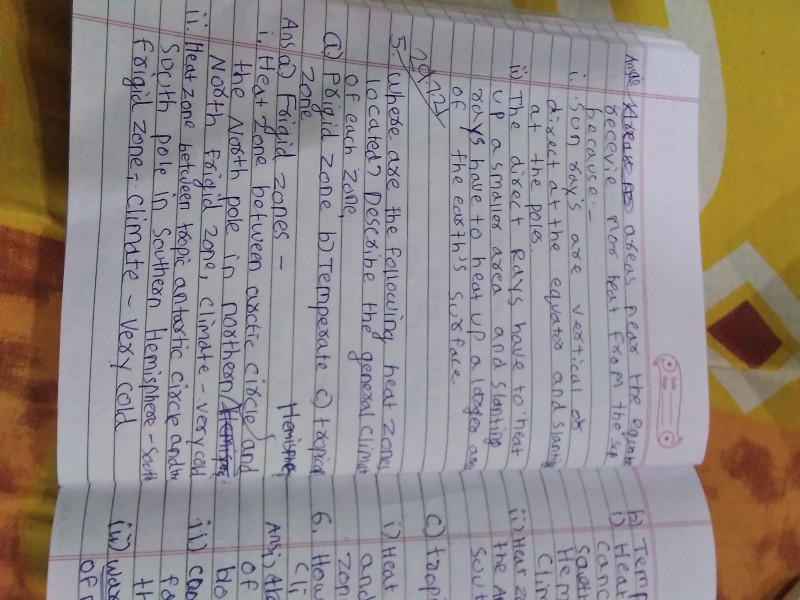 areas near the equato
recevie mor heat from the sun
because:-
i. Sun ray's are vertical or
direct at the equator and slantig
at the poles.
ii) The direct Rays have to heat
up a smaller area and slanting
rays have to heat up a larger
of the earth's surface
5. Where are the following heat zones
located? Describe the general climat
of each zone,
a) Frigid zone b) Temperate c) tropical
zone
Ans a) Frigid zones -
i. Heat zone between arctic circle and
the North pole in northern
Hemisphere
North frigid zone, climate - very cold
ii. Heat zone between tropic antartic circle and
South pole in Southern Hemisphere - South
frigid zone, climate - very cold
b) Temp
i) Heat
canc
South
Hem
Clim
ii) Heat zo
the A
Sout
c) tropi
i) Heat
and
zon
6. How
Cli
Ans i)
of
bo
ii)
fo
th
iii) War
of